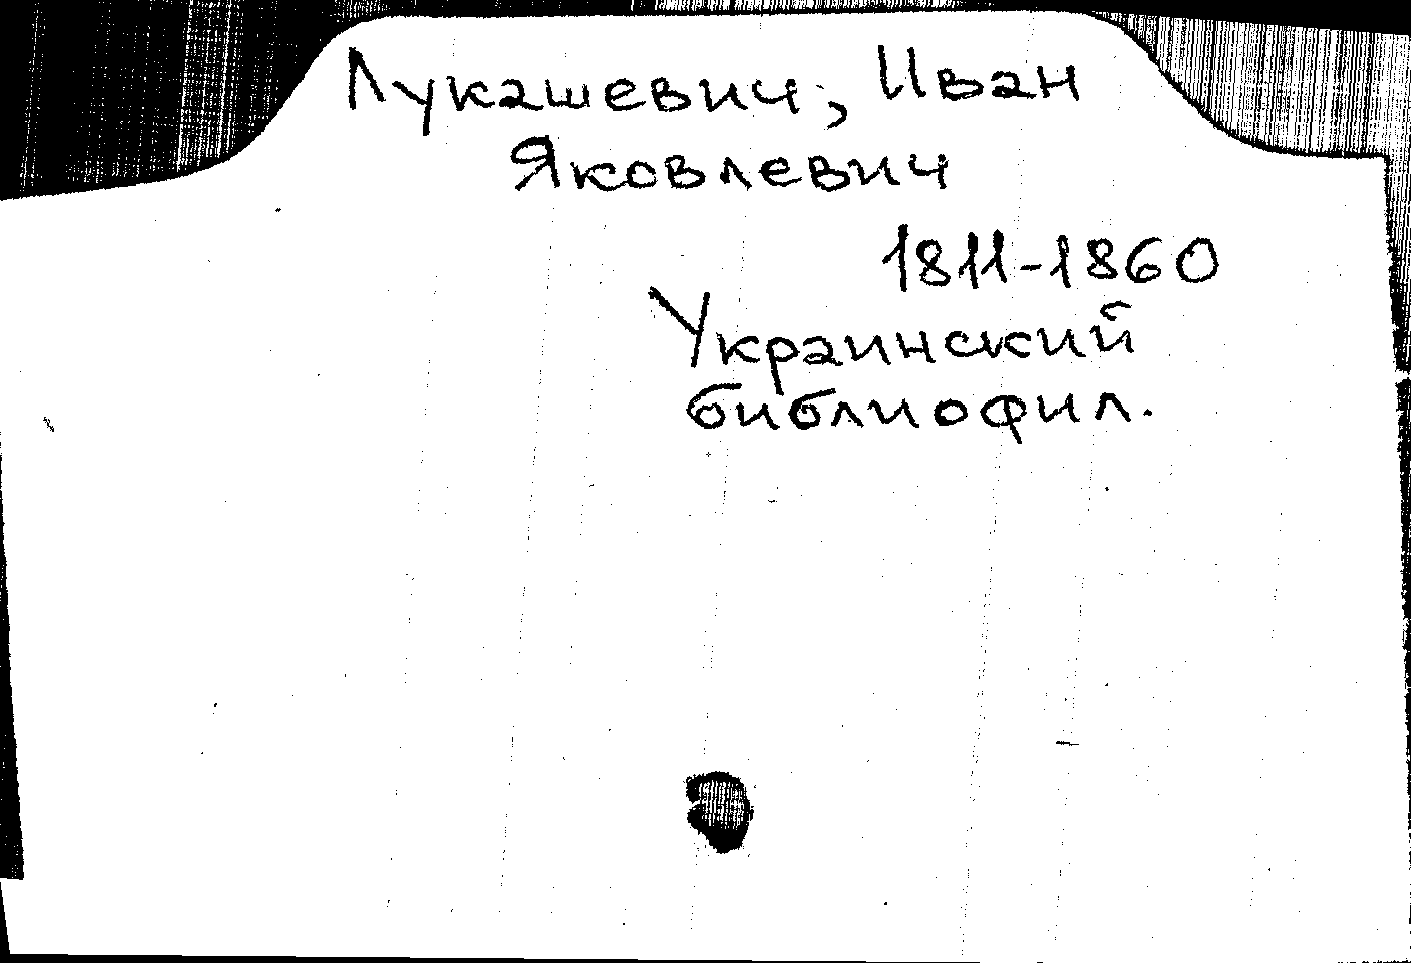 Лукашевич, Иван
Яковлевич
1811-1860
Украинский
библиофил.